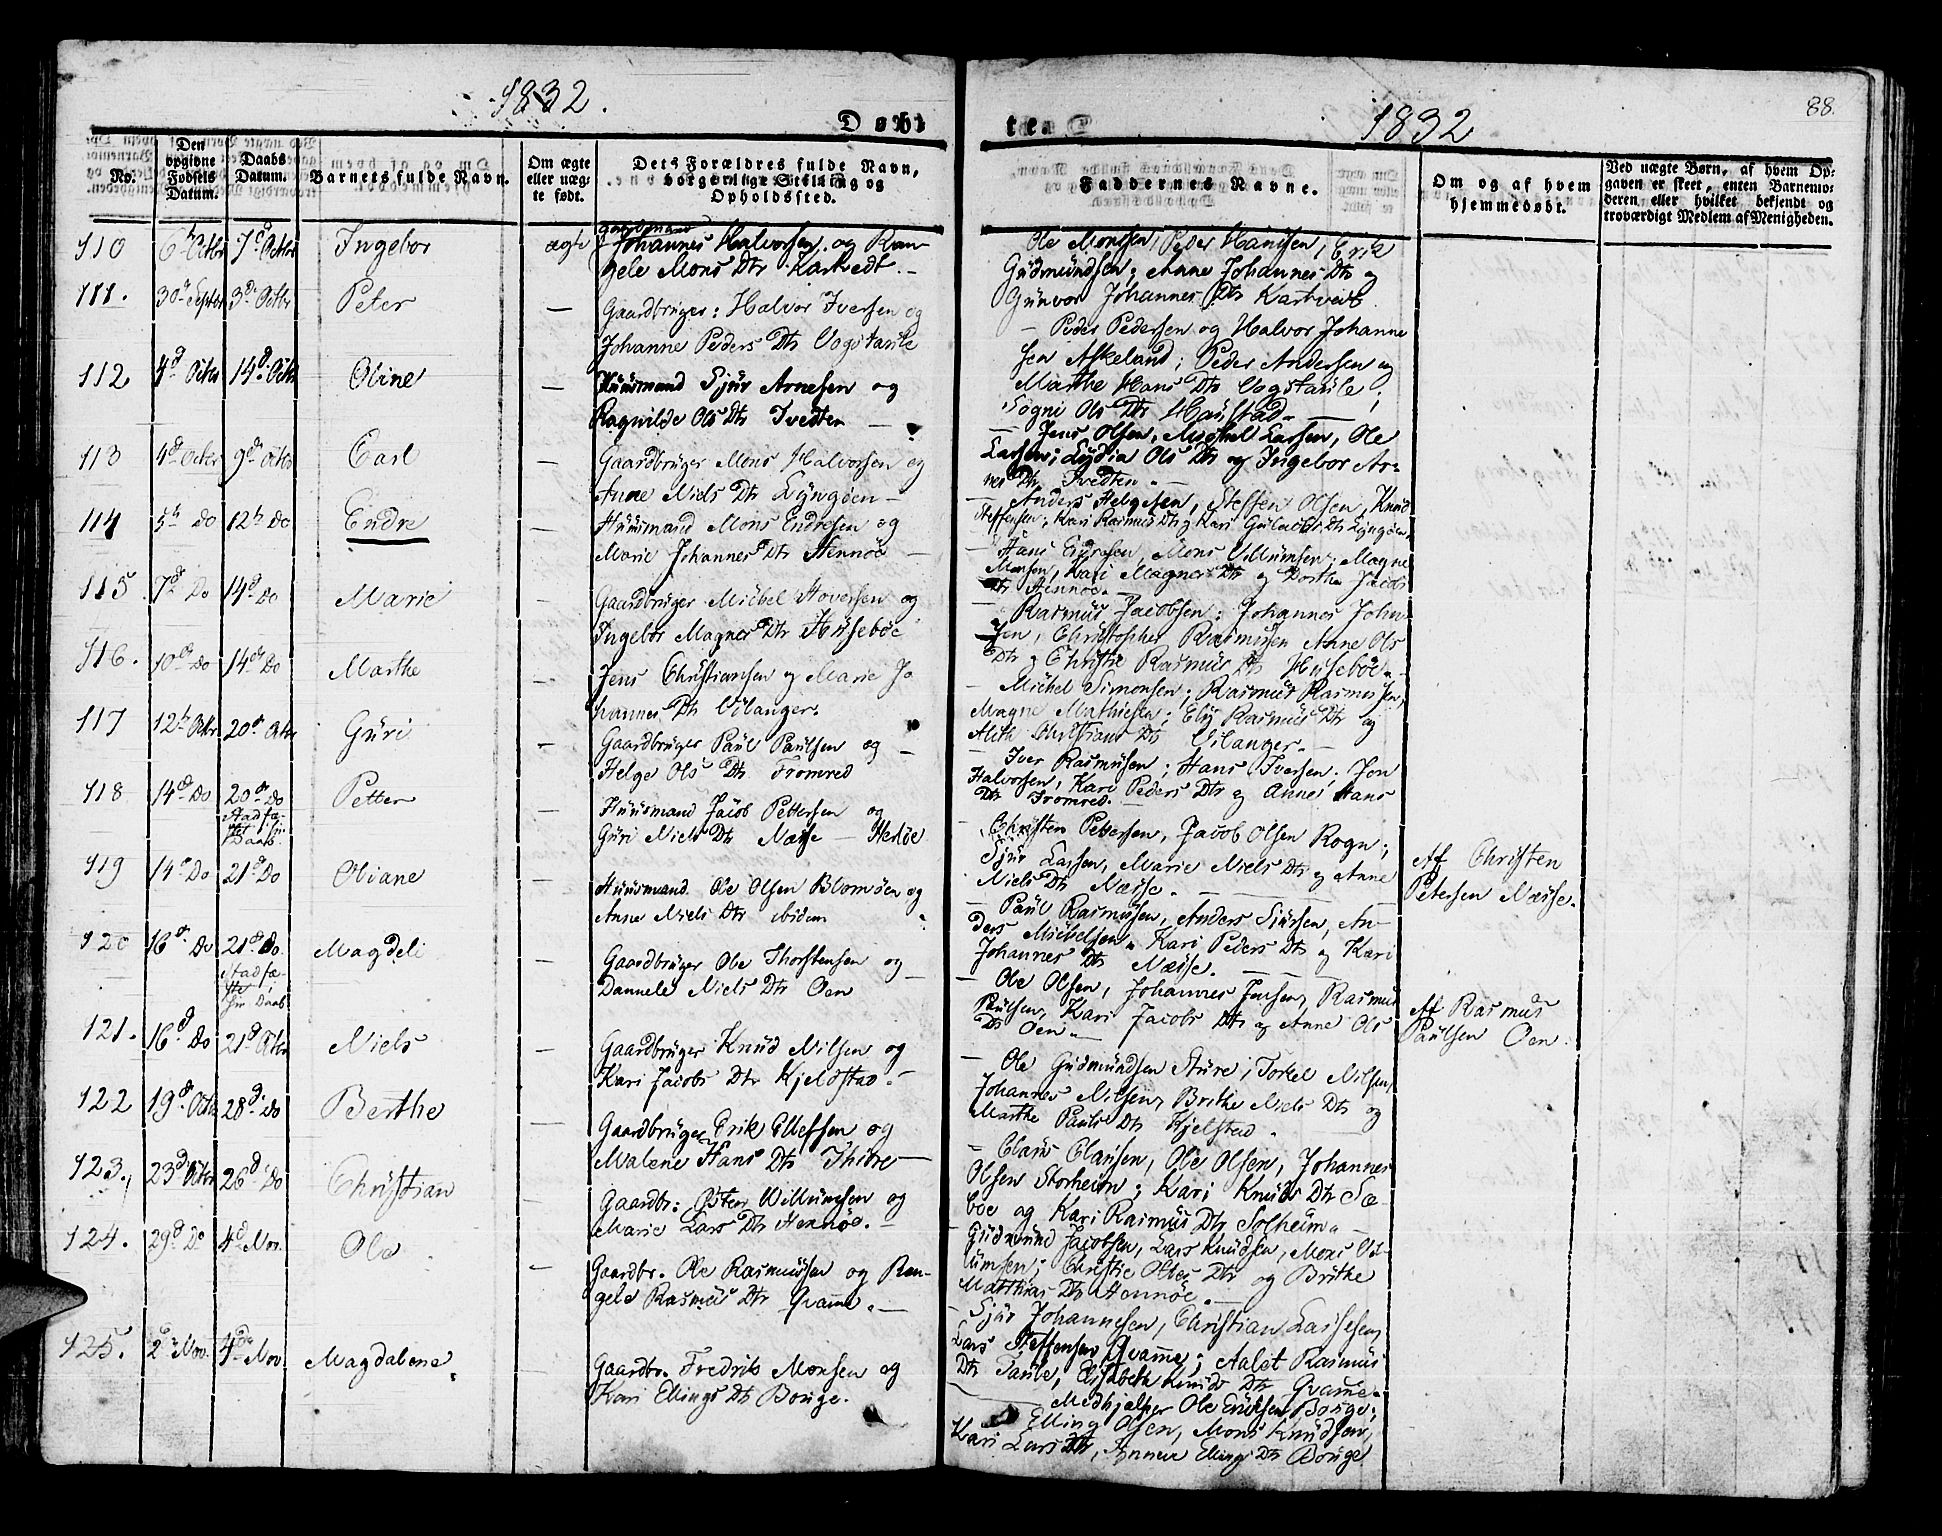 1832.
Døbte
1832
88.
No.
Den opgivne Fødsels Datum.
Daabs Datum.
Barnets fulde Navn.
Om ægte eller uægte født.
Dets Forældres fulde Navn, borgerlige Stilling og Opholdssted.
Faddernes Navne.
Om og af hvem hjemmedøbt.
Ved uægte Børn, af hvem Opgaven er skeet, enten Barnemoderen eller hvilket bekjendt og troværdigt Medlem af Menigheden.
110 6te Octbr 7d Octbr Ingebor ægte Gaardmand
Johannes Halvorsen og Ran-
gele Mons Dtr Kartvedt. -
Ole Monssen, Peder Hanssen, Erik
Gudmundsen; Anne Johannes Dtr og
Gunvor Johannes Dtr Kartveit.
111. 30d Septbr 3d Octbr Peter — Gaardbruger: Halvor Iversen og
Johanne Peders Dtr Vogstaule
- Peder Pedersen og Halvor Johanne
sen Askeland; Peder Andersen og
Marthe Hans Dtr Vogstaule;
Sogni Ols Dtr Haustad -
112 4d Octbr 14d Octbr Oline — Huusmand Sjur Arnesen og
Ragnilde Ols Dtr Tvedten —
- Jens Olsen, Michel Larsen, Ole
Larsen; Lydia Ols Dtr og Ingebor Ar-
nes Dtr Tvedten. -
113 4d Octbr 9d Octbr Carl — Gaardbruger Mons Halvorsen og
Anne Niels Dtr Lyngøen -
- Anders Helgesen, Steffen Olsen, Knud
Steffensen; Kari Rasmus Dtr og Kari Dtr Lyngøen.
114 5te Do 12te Do Endre — Huusmand Mons Endresen og
Marie Johannes Dtr Hennøe -
- Hans Endresen, Mons Villumsen; Magne
Monsen, Kari Magnes Dtr og Dorthe Jacobs
Dtr Hennøe. -
115. 7d Do 14d Do Marie — Gaardbruger Michel Hoversen og
Ingebor Magnes Dtr Husebøe
- Rasmus Jacobsen; Johannes John-
sen, Christopher Rasmusen Anne Ols
Dtr og Christie Rasmus Dtr Husebøe. -
116. 10de Do 14de Do Marthe — Jens Christiansen og Marie Jo
hannes Dtr Vilanger.
- Michel Simonsen; Rasmus Rasmusen,
Magne Mathiesen; Elig Rasmus Dtr og
Aleth Christians Dtr Vilanger. -
117 12te Octbr 20d Octbr Guri — Gaardbruger Paul Paulsen og -
Helge Ols Dtr Fromred
- Iver Rasmusen; Hans Iversen; Jon
Halvorsen, Kari Peders Dtr og Anne Hans
Dtr Fromred. -
118 14d Do 20d Do
Stadfæ-
stet i sin
Daab.
Petter — Huusmand Jacob Pettersen og
Guri Niels Dtr Næsse — Herløe
- Christen Pettersen, Jacob Olsen Rogn;
Sjur Larsen, Marie Niels Dtr og Anne
Niels Dtr Næsse. -
Af Christen
Petersen Næsse.
119 14d Do 21d Do Oliane — Huusmand Ole Olsen Blomøen og
Anne Niels Dtr ibidem
- Paul Rasmussen, Anders Sjursen, An-
ders Michelsen, Kari Peders Dtr og Kari
Johannes Dtr Næsse. -
120 16d Do 21d Do.
Stadfæ-
stet i
sin Daab
Magdeli — Gaardbruger Ole Thorstensen og -
Dannele Niels Dtr Oen
- Ole Olsen, Johannes Jensen, Rasmus
Paulsen, Kari Jacobs Dtr og Anne Ols
Dtr Oen. -
Af Rasmus
Paulsen Oen.
121. 16d Do 21d Octbr Niels — Gaardbruger Knud Nilsen og
Kari Jacobs Dtr Kjeldstad. -
- Ole Gudmundsen Sture; Torkel Nilsen,
Johannes Nilsen, Brithe Niels Dtr og
Marthe Pauls Dtr Kjelstad.
122 19d Octbr 28d Do Berthe — Gaardbruger Erik Ellefsen og
Malene Hans Dtr Thirre -
- Claus Clausen, Ole Olsen, Johannes
Olsen Storheim; Kari Knuds Dtr Sæ-
bøe og Kari Rasmus Dtr Solheim. -
123. 23d Octbr 26d Do Christian — Gaardbr: Peter Villumsen og
Marie Lars Dtr Hennøe. -
Gudmund Jacobsen, Lars Knudsen, Mons Vil-
lumsen; Christie Dtr og Brithe
Matthias Dtr Hennøe. -
124. 29d Do 4d Nov. Ole — Gaardbr. Ole Rasmussen og Ran-
gele Rasmus Dtr Qvamme. -
- Sjur Johannesen, Christian Larsesen,
Lars Steffensen Qvamme; Aalet Rasmus
Dtr Taule, Elisabeth Knuds Dtr Qvamme.
125. 2d Nov. 4de Nov. Magdalene. Gaardbr. Fredrik Monsen og
Kari Ellings Dtr Bouge.
- Medhjælper Ole Ericksen Bouge;
Elling Olsen, Mons Knudsen,
Kari Lars Dtr, Annen Ellings Dtr Bouge